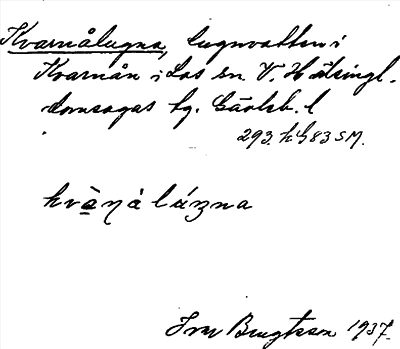 Kvarnålugna, lugnvatten i
Kvarnån i Los sn V. Hälsingl.
domsagas tg. Gävleb. l
293. h G 83 SM.
kvàŋálázna
Ivar Bengtsson 1937.